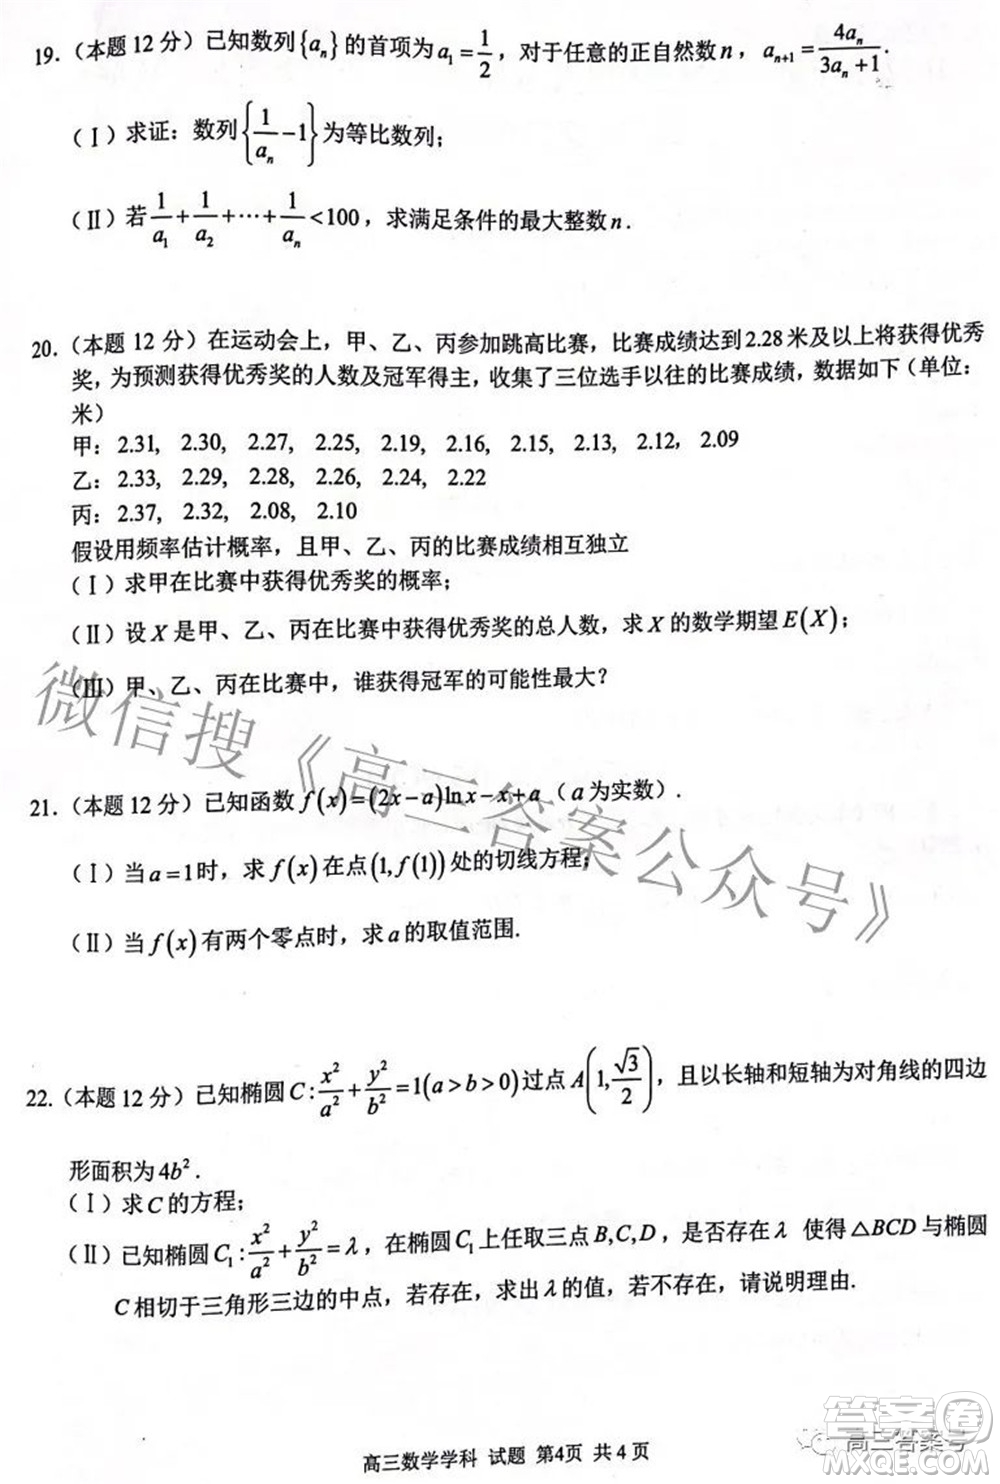 19.（本题12分）已知数列{aₙ}的首项为a₁=1/2，对于任意的正自然数n，aₙ₊₁=4aₙ/(3aₙ+1).
（Ⅰ）求证：数列{1/aₙ-1}为等比数列；
（Ⅱ）若1/a₁+1/a₂+…+1/aₙ<100，求满足条件的最大整数n.
20.（本题12分）在运动会上，甲、乙、丙参加跳高比赛，比赛成绩达到2.28米及以上将获得优秀
奖，为预测获得优秀奖的人数及冠军得主，收集了三位选手以往的比赛成绩，数据如下（单位：
米）
甲：2.31, 2.30, 2.27, 2.25, 2.19, 2.16, 2.15, 2.13, 2.12, 2.09
乙：2.33, 2.29, 2.28, 2.26, 2.24, 2.22
丙：2.37, 2.32, 2.08, 2.10
假设用频率估计概率，且甲、乙、丙的比赛成绩相互独立
（Ⅰ）求甲在比赛中获得优秀奖的概率；
（Ⅱ）设X是甲、乙、丙在比赛中获得优秀奖的总人数，求X的数学期望E(X)；
（Ⅲ）甲、乙、丙在比赛中，谁获得冠军的可能性最大？
微信搜《高三答案公众号》
21.（本题12分）已知函数f(x)=(2x-a)lnx-x+a（a为实数）.
（Ⅰ）当a=1时，求f(x)在点(1,f(1))处的切线方程；
（Ⅱ）当f(x)有两个零点时，求a的取值范围.
22.（本题12分）已知椭圆C:x²/a²+y²/b²=1(a>b>0)过点A(1,√3/2)，且以长轴和短轴为对角线的四边
形面积为4b².
（Ⅰ）求C的方程；
（Ⅱ）已知椭圆C₁:x²/a²+y²/b²=λ，在椭圆C₁上任取三点B,C,D，是否存在λ 使得△BCD与椭圆
C相切于三角形三边的中点，若存在，求出λ的值，若不存在，请说明理由.
高三数学学科 试题 第4页 共4页
高三答案号
答案圈